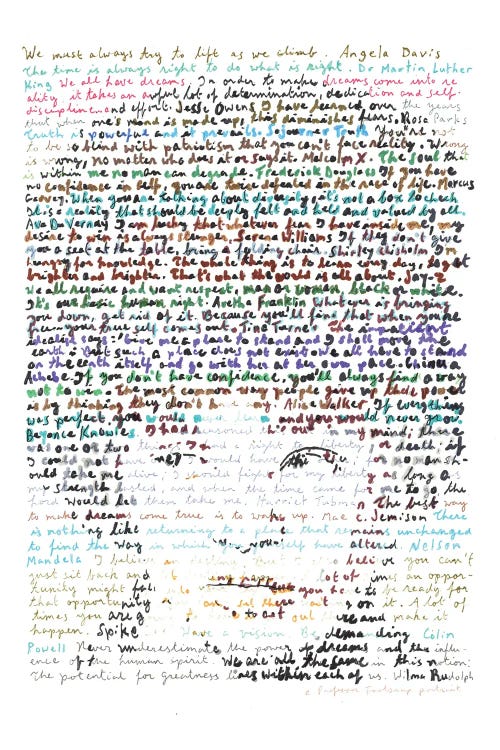 We must always try to lift as we climb. Angela Davis
The time is always right to do what is right. Dr Martin Luther
King We all have dreams. In order to make dreams come into re
ality, it takes an awful lot of determination, dedication and self-
discipline and effort. Jesse Owens I have learned over the years
that when one's mind is made up, this diminishes fears. Rosa Parks
Truth is powerful and it prevails. Sojourner Truth You're not
to be so blind with patriotism that you can't face reality. Wrong
is wrong, no matter who does it or says it. Malcolm X. The soul that
is within me no man can degrade. Frederick Douglass If you have
no confidence in self, you are twice defeated in the race of life. Marcus
Garvey. When you are talking about diversity, it's not a box to check
It is a reality that should be deeply felt and held and valued by all.
Ava D-Vernay I am lucky that whatever fear I have inside me, my
desire to win is always stronger. Serena Williams If they don't give
you a seat at the table, bring a folding chair. Shirley Chisholm I'm
hungry for knowledge. The whole thing is to learn every day, to get
brighter and brighter. That's what the world is all about. Jay-Z
We all require and want respect, man or woman, black or white.
It's our basic human right. Aretha Franklin Whatever is bringing
you down, get rid of it. Because you'll find that when you're
free.. your true self comes out. Tina Turner The impatient
idealist says: 'Give me a place to stand and I shall move the
earth.' But such a place does not exist. We all have to stand
on the earth itself and go with her at her own pace. Chinua
Achebe If you don't have confidence, you'll always find a way
not to win. The most common way people give up their power
is by thinking they don't have any. Alice Walker. If everything
was perfect, you would never learn and you would never grow.
Beyonce Knowles. I had reasoned this out in my mind; there
was one or two things I had a right to liberty, or death; if
I could not have one, I would have the other; for no man sh-
ould take me alive; I should fight for my liberty as long as
my strength lasted, and when the time came for me to go the
Lord would let them take me. Harriet Tubman The best way
to make dreams come true is to wake up. Mae C. Jemison There
is nothing like returning to a place that remains unchanged
to find the way in which you yourself have altered. Nelson
Mandela I believe in destiny. But I also believe you can't
just sit back and let happen lot of times an oppor-
tunity might fall into but you have to be ready for
that opportunity. sat there waiting on it. A lot of
times you are going to have to get out there and make it
happen. Spike Have a vision. Be demanding Colin
Powell Never underestimate the power of dreams and the influ-
ence of the human spirit. We are all the same in this notion:
The potential for greatness lives within each of us. Wilma Rudolph
a Professor Foolscap portrait